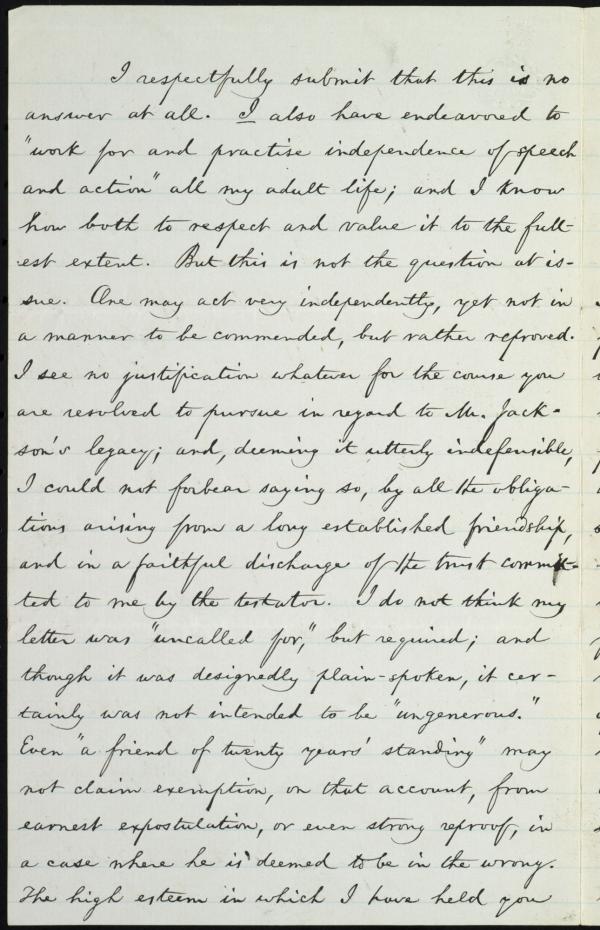 I respectfully submit that this is no
answer at all. I also have endeavored to
"work for and practise independence of speech
and action" all my adult life; and I know
how both to respect and value it to the full-
est extent. But this is not the question at is-
sue. One may act very independently, yet not in
a manner to be commended, but rather reproved.
I see no justification whatever for the course you
are resolved to pursue in regard to Mr. Jack-
son's legacy; and, deeming it utterly indefensible,
I could not forbear saying so, by all the obliga-
tions arising from a long established friendship,
and in a faithful discharge of the trust commit-
ted to me by the testator. I do not think my
letter was "uncalled for," but required; and
though it was designedly plain-spoken, it cer-
tainly was not intended to be "ungenerous."
Even "a friend of twenty years' standing" may
not claim exemption, on that account, from
earnest expostulation, or even strong reproof, in
a case where he is deemed to be in the wrong.
The high esteem in which I have held you